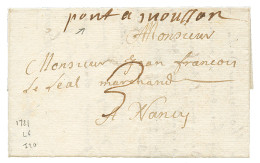 pont a mousson
Monsieur
Monsieur jean francois
le Leal marchand
3
A Nancy
1721